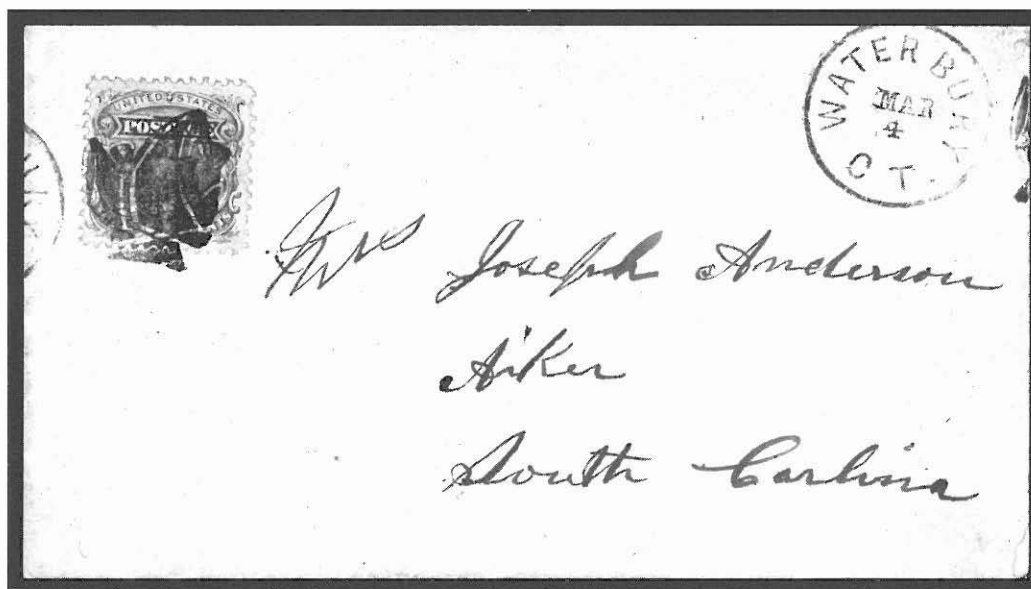 UNITED STATES
POSTAGE
WATERBURY
MAR
4
CT.
Mrs Joseph Anderson
Aiker
South Carlina